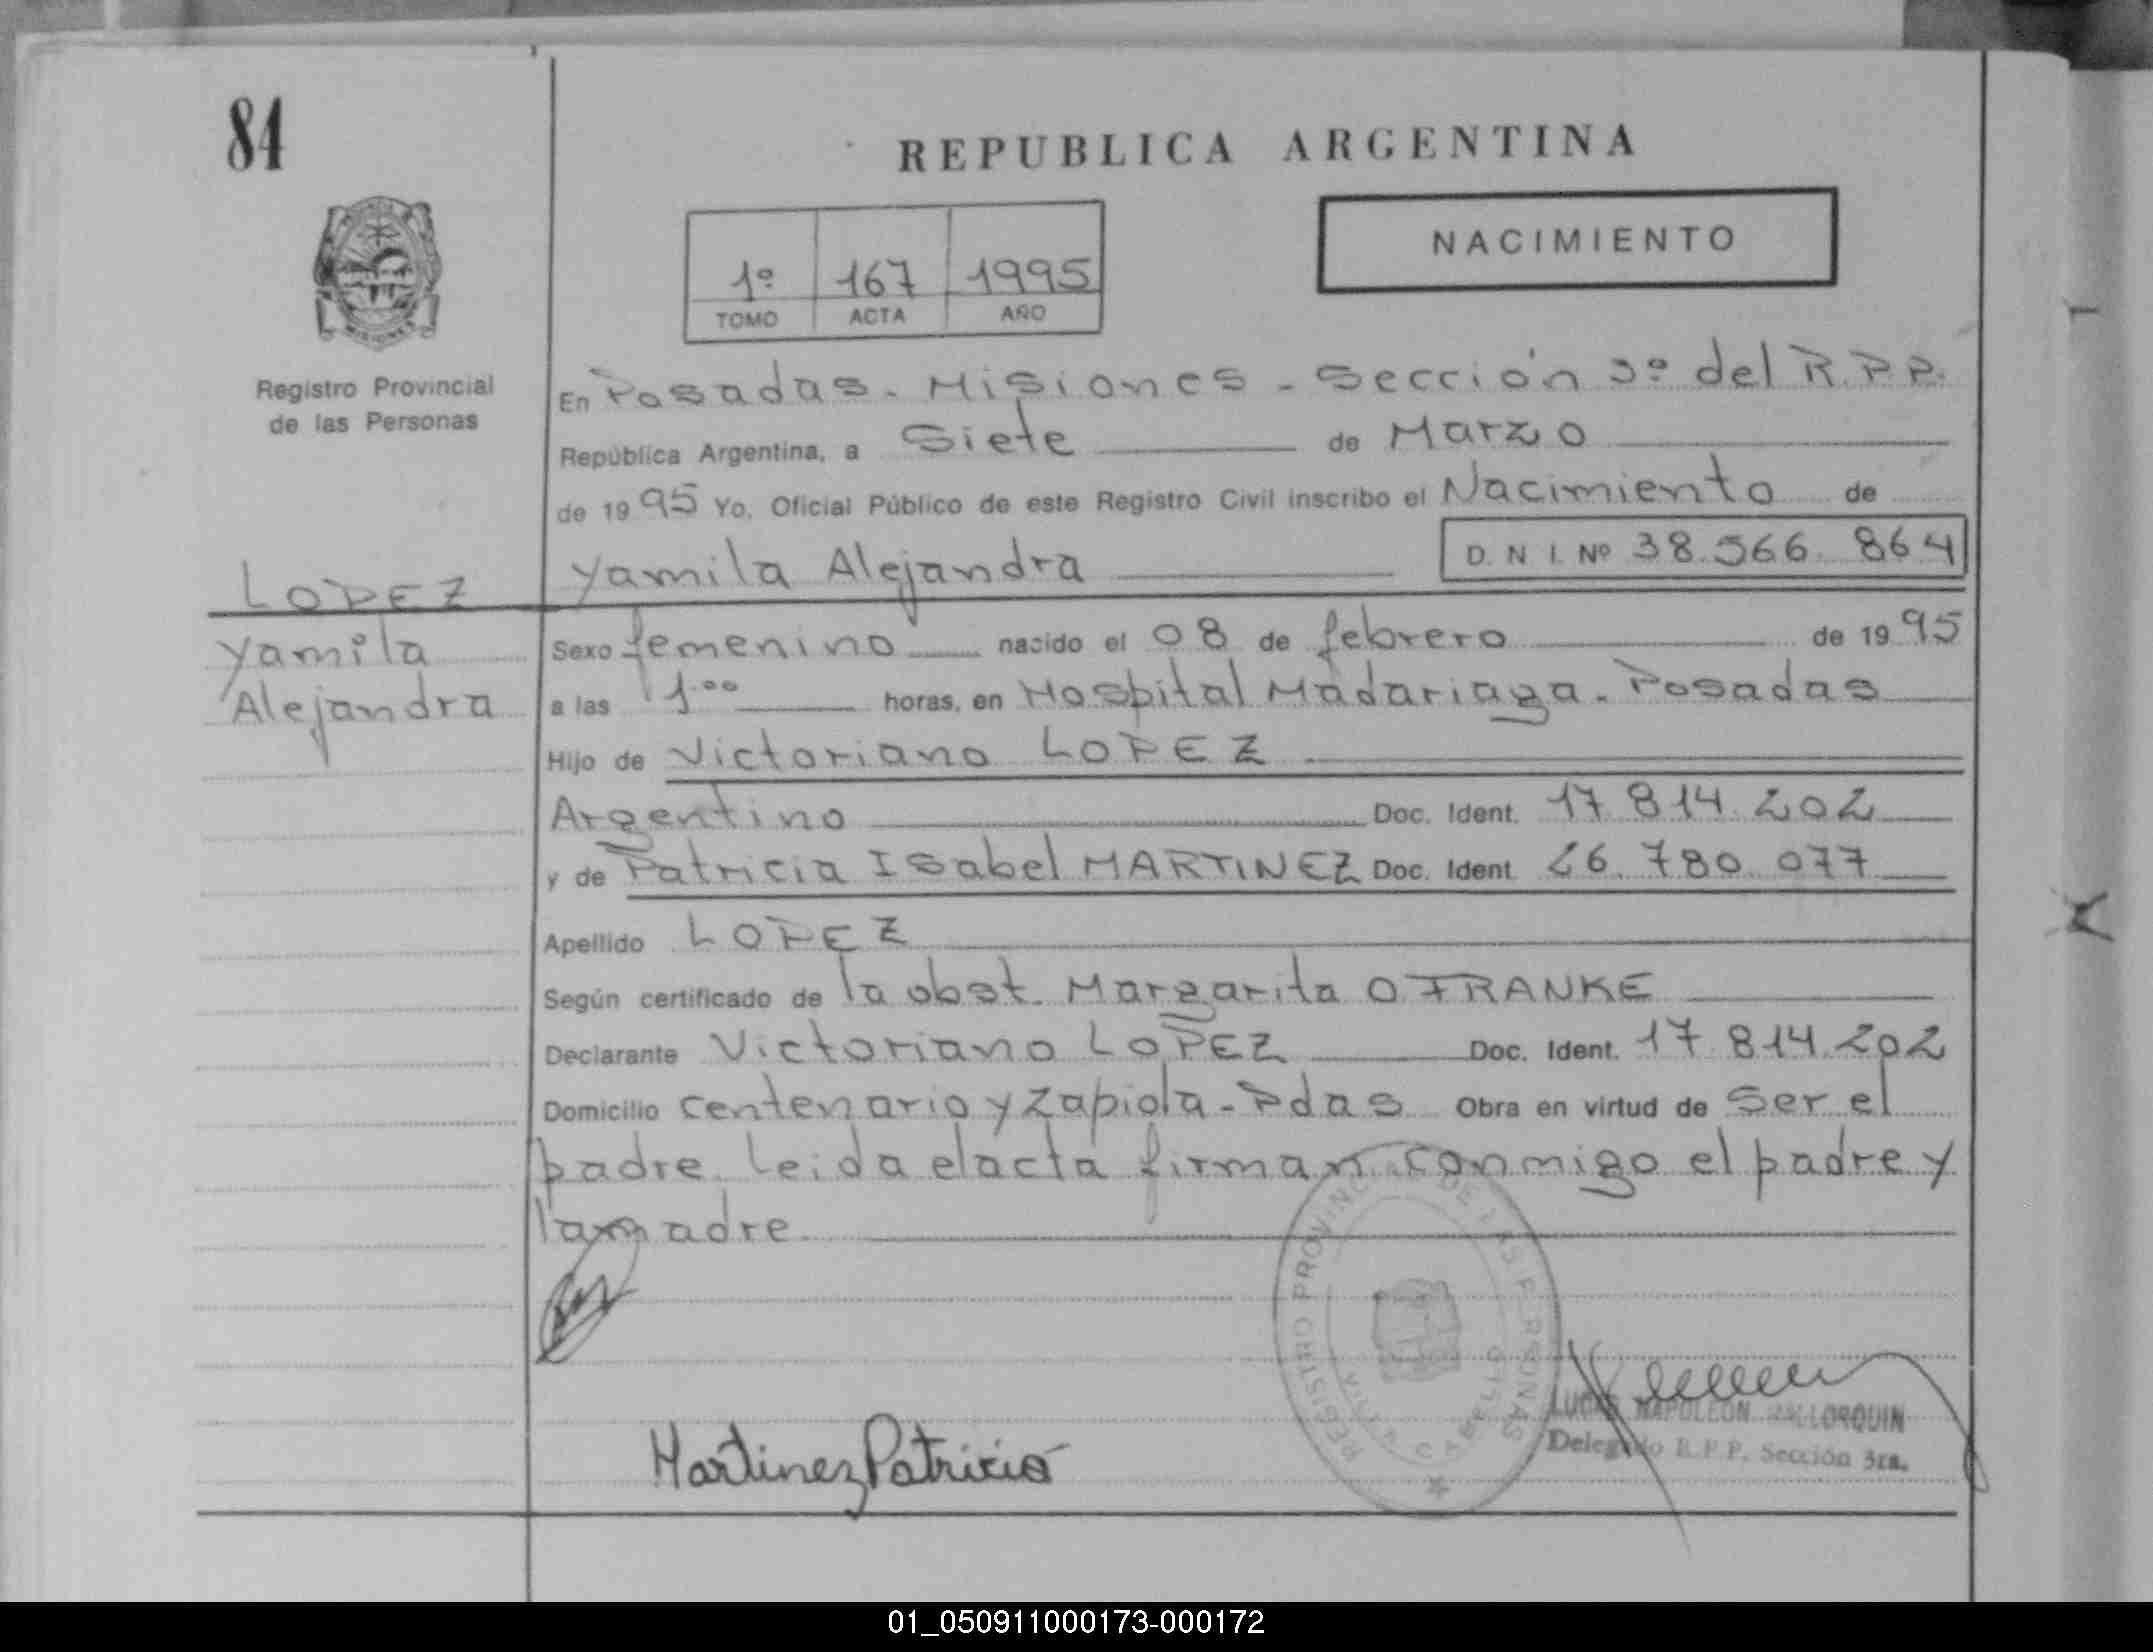 84
REPUBLICA ARGENTINA
NACIMIENTO
1º 167 1995
TOMO ACTA AÑO
MISIONES
Registro Provincial
de las Personas
En Posadas - Misiones - Sección 3º del R.P.P.
República Argentina, a Siete de Marzo
de 1995 Yo, Oficial Público de este Registro Civil inscribo el Nacimiento de
Yamila Alejandra D.N.I. Nº 38.566.864
LOPEZ
Yamila
Alejandra
Sexo femenino nacido el 08 de febrero de 1995
a las 1.00 horas, en Hospital Madariaga - Posadas
Hijo de Victoriano LOPEZ
Argentino Doc. Ident. 17.814.202
y de Patricia Isabel MARTINEZ Doc. Ident. 26.780.077
Apellido LOPEZ
Según certificado de la obst. Margarita O. FRANKE
Declarante Victoriano LOPEZ Doc. Ident. 17.814.202
Domicilio Centenario y Zapiola - Pdas Obra en virtud de Ser el
padre. Leida el acta firman conmigo el padre y
la madre
REGISTRO PROVINCIAL DE LAS PERSONAS
VILLA CABELLO
LUCAS NAPOLEON MALLORQUIN
Delegado R.P.P. Sección 3ra.
Martinez Patricia
01_050911000173-000172